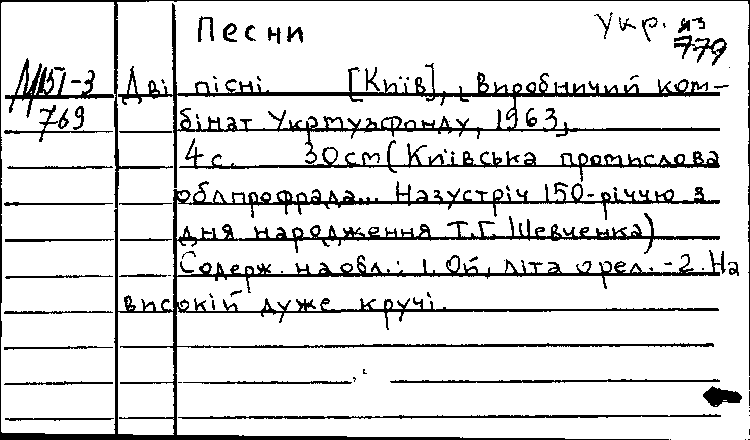 Песни
Укр. яз
779
М 151-3
769
Дві пісні. [Київ], Виробничий ком-
бінат Укрмузфонду, 1963,
4 с. 30 cm (Київська промислова
облпрофрада... Назустріч 150-річчю з
дня народження Т.Г. Шевченка)
Содерж. на обл.: 1. Ой, літа орел. - 2. На
високій дуже кручі.